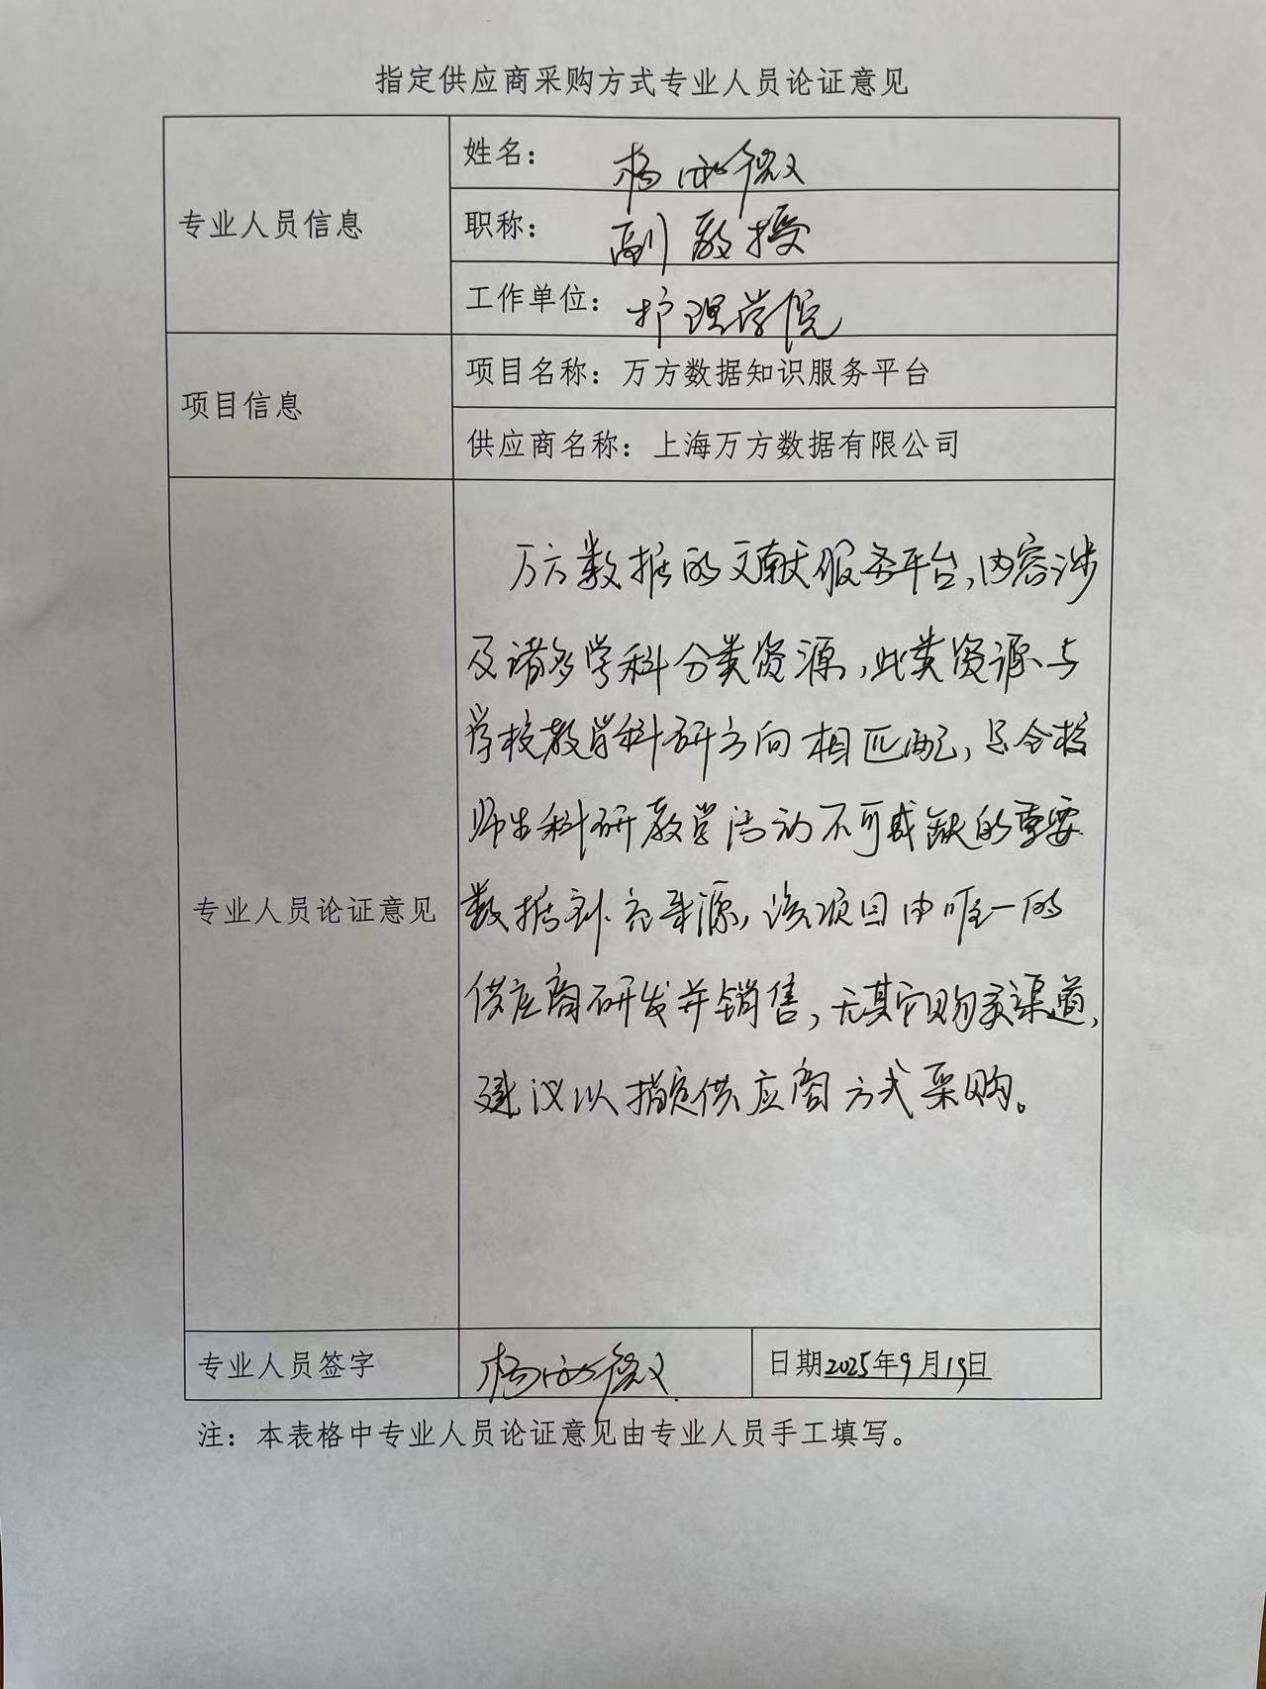 指定供应商采购方式专业人员论证意见
专业人员信息
姓名： 杨 微
职称： 副教授
工作单位： 护理学院
项目信息
项目名称：万方数据知识服务平台
供应商名称：上海万方数据有限公司
专业人员论证意见
万方数据的文献服务平台，内容涉
及诸多学科分类资源，此类资源与
学校教学科研方向相匹配，是全校
师生科研教学活动不可或缺的重要
数据补充来源，该项目由唯一的
供应商研发并销售，无其它购买渠道，
建议以指定供应商方式采购。
专业人员签字
杨 微
日期2025年9月19日
注：本表格中专业人员论证意见由专业人员手工填写。